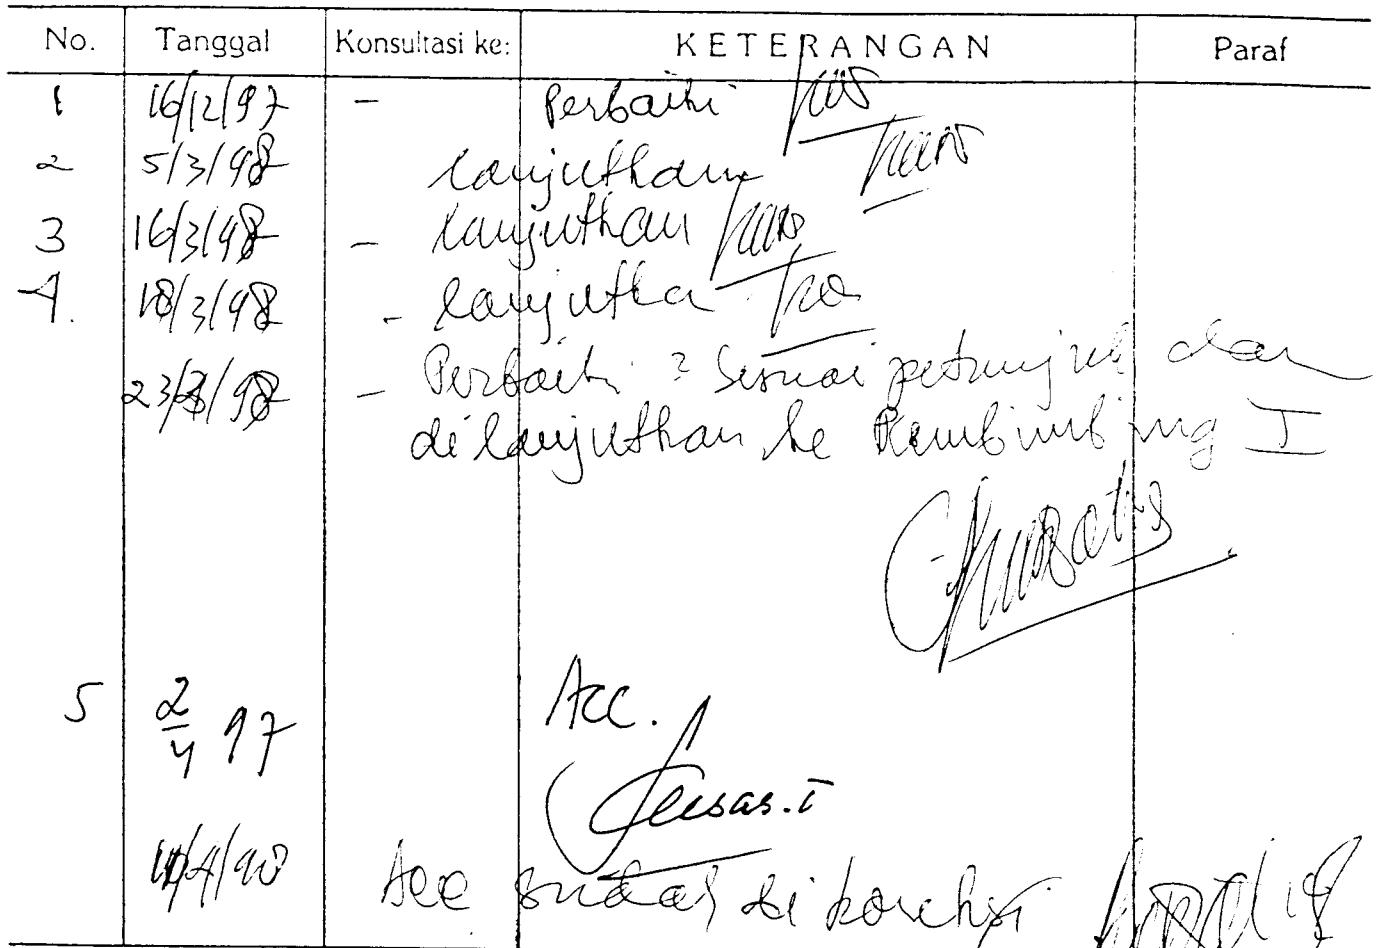 No. Tanggal Konsultasi ke: KETERANGAN Paraf
1 16/12/97 - Perbaiki
2 5/3/98 lanjutkan
3 16/3/98 - lanjutkan
4. 18/3/98 - lanjutka
23/3/98 - Perbaiki 2 sesuai petunjuk dan
dilanjutkan ke Pembimbing I
5 2/4 97 Acc.
/4/98 Acc sudah di koreksi